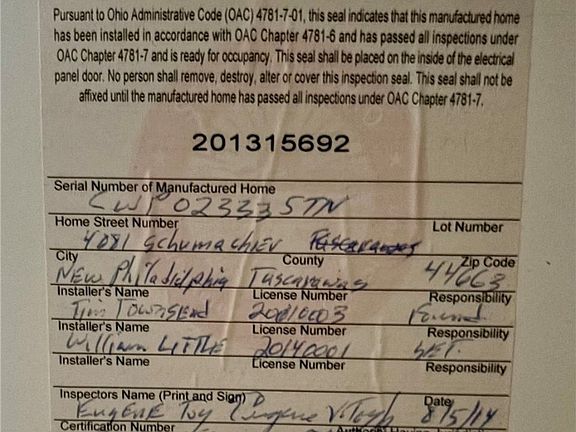 Pursuant to Ohio Administrative Code (OAC) 4781-7-01, this seal indicates that this manufactured home
has been installed in accordance with OAC Chapter 4781-6 and has passed all inspections under
OAC Chapter 4781-7 and is ready for occupancy. This seal shall be placed on the inside of the electrical
panel door. No person shall remove, destroy, alter or cover this inspection seal. This seal shall not be
affixed until the manufactured home has passed all inspections under OAC Chapter 4781-7.
201315692
Serial Number of Manufactured Home
CWP023335TN
Home Street Number Lot Number
4081 Schumachier
City County Zip Code
New Philadilphia Tuscarawas 44663
Installer's Name License Number Responsibility
Tim Townsend 20010003 Found
Installer's Name License Number Responsibility
William Little 20140001 SET.
Installer's Name License Number Responsibility
Inspectors Name (Print and Sign) Date
Eugene Toy 8/5/14
Certification Number